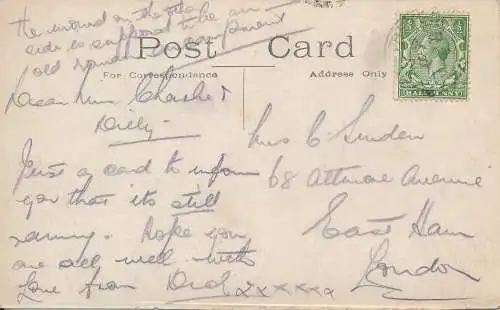 the mound on the other
side is supposed to be an
old roman encampment
Post Card
For Correspondence
Address Only
HALFPENNY
Dear Mrs
Dilly
Just a card to inform
you that its still
raining. Hope you
are all well with
Love from Dad xxxxxx
Mrs C Linden
68 Avenue
East Ham
London